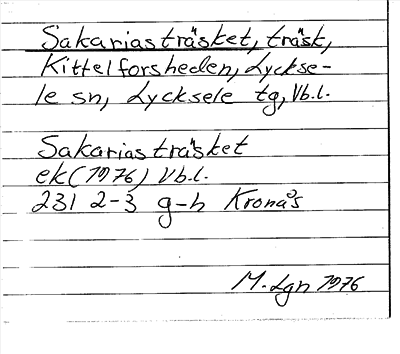 Sakariasträsket, träsk,
Kittelforsheden, Lyckse-
le sn, Lycksele tg, Vb.l.
Sakariasträsket
ek (1976) Vb.l.
231 2-3 g-h Kronås
M. Lgn 1976